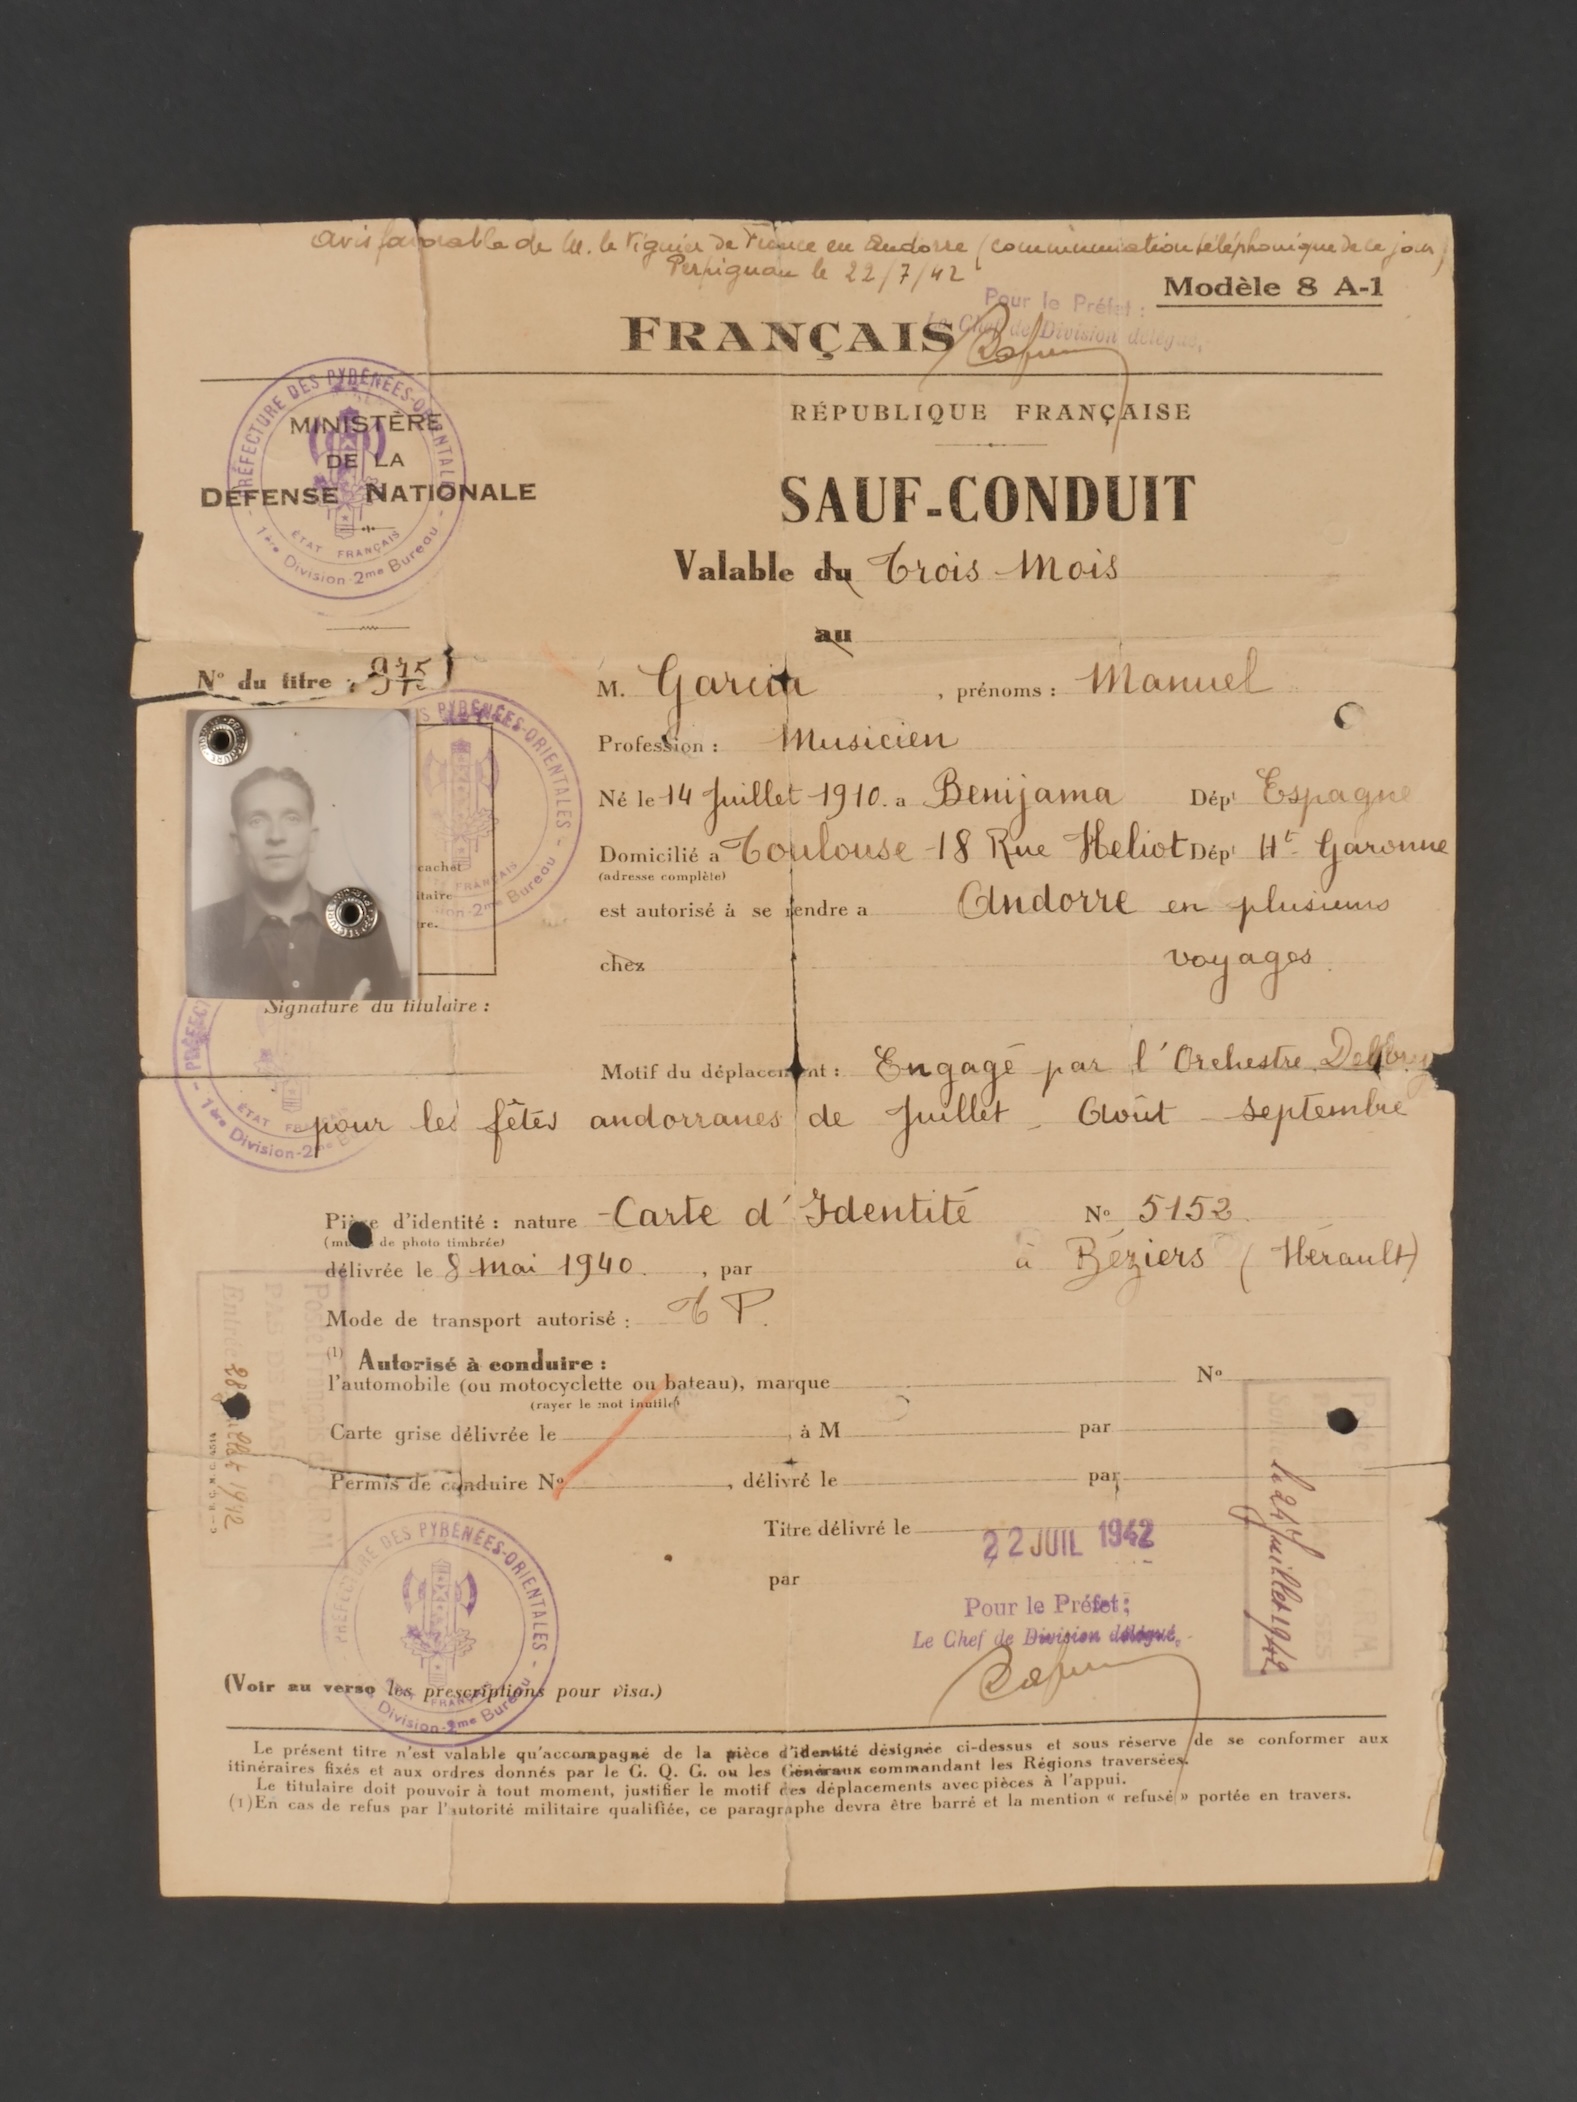 avis favorable de M. le Viguier de France en Andorre (communication téléphonique de ce jour)
Perpignan le 22/7/42
Modèle 8 A-1
Pour le Préfet :
Le Chef de Division délégué,
FRANÇAIS
PRÉFECTURE DES PYRÉNÉES-ORIENTALES
ÉTAT FRANÇAIS
1ère Division-2me Bureau
MINISTÈRE
DE LA
DÉFENSE NATIONALE
RÉPUBLIQUE FRANÇAISE
SAUF-CONDUIT
Valable du Trois Mois
au
No du titre : 975
M. Garcia , prénoms : Manuel
Profession : Musicien
Né le 14 Juillet 1910. a Benijama Dépt Espagne
Domicilié a Toulouse 18 Rue Heliot Dépt Hte Garonne
(adresse complète)
est autorisé à se rendre a Andorre en plusieurs
chez voyages.
cachet
itaire
re.
S PYRÉNÉES-ORIENTALES
2me Bureau
Signature du titulaire :
Motif du déplacement : Engagé par l'Orchestre
pour les fêtes andorranes de Juillet - Août - septembre
PRÉFECT
ÉTAT
1ère Division-2me
Pièce d'identité : nature - Carte d'Identité No 5152
de photo timbrée)
délivrée le 8 mai 1940. , par à Béziers (Hérault)
Mode de transport autorisé : T P.
(1) Autorisé à conduire :
l'automobile (ou motocyclette ou bateau), marque No
(rayer le mot inutile)
Carte grise délivrée le , à M par
Permis de conduire No , délivré le par
Titre délivré le 22 JUIL 1942
par
Pour le Préfet :
Le Chef de Division délégué,
PAS DE LA CASE
Entrée 28 Juillet 1942
Sortie le 24 Juillet 1942
PRÉFECTURE DES PYRÉNÉES-ORIENTALES
FRANÇAIS
Division-2me Bureau
(Voir au verso les prescriptions pour visa.)
Le présent titre n'est valable qu'accompagné de la pièce d'identité désignée ci-dessus et sous réserve de se conformer aux
itinéraires fixés et aux ordres donnés par le G. Q. G. ou les Généraux commandant les Régions traversées.
Le titulaire doit pouvoir à tout moment, justifier le motif des déplacements avec pièces à l'appui.
(1) En cas de refus par l'autorité militaire qualifiée, ce paragraphe devra être barré et la mention « refusé » portée en travers.